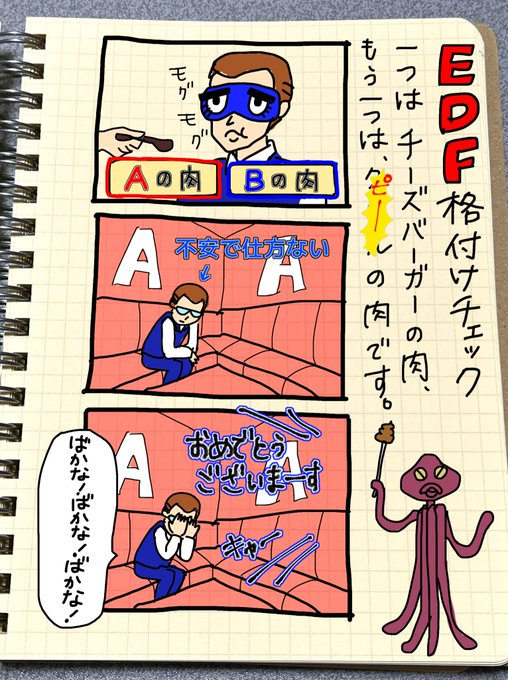 EDF格付けチェック
一つはチーズバーガーの肉、
もう一つは、ピールの肉です。
モグ
モグ
Aの肉
Bの肉
A
A
不安で仕方ない
A
A
おめでとう
ございまーす
キャー
ばかな!ばかな!ばかな!